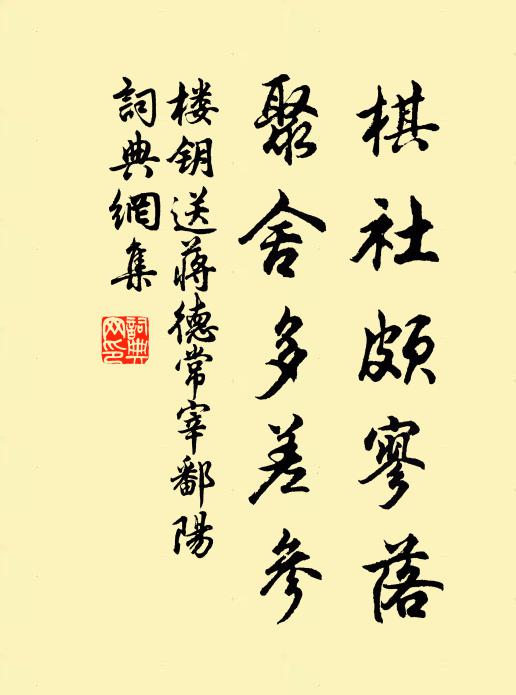 棋社頗寥落
聚舍多差參
楼钥送蒋德常宰鄱陽
詞典網集
詞典網印